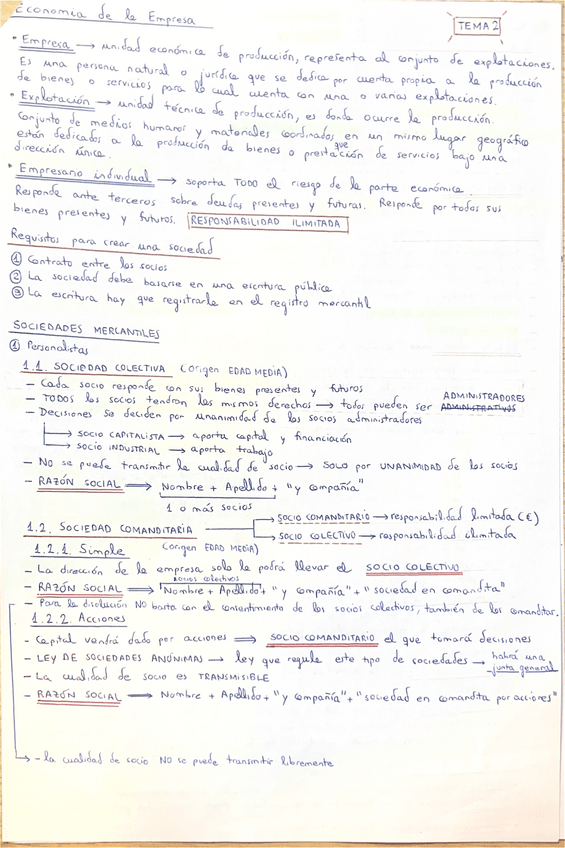 Economía de la Empresa
TEMA 2
• Empresa → unidad económica de producción, representa al conjunto de explotaciones.
Es una persona natural o jurídica que se dedica por cuenta propia a la producción
de bienes o servicios para lo cual cuenta con una o varias explotaciones.
• Explotación → unidad técnica de producción, es donde ocurre la producción.
Conjunto de medios humanos y materiales coordinados en un mismo lugar geográfico
que
están dedicados a la producción de bienes o prestación de servicios bajo una
dirección única.
• Empresario individual → soporta TODO el riesgo de la parte económica.
Responde ante terceros sobre deudas presentes y futuras. Responde por todos sus
bienes presentes y futuros. RESPONSABILIDAD ILIMITADA
Requisitos para crear una sociedad
① Contrato entre los socios
② La sociedad debe basarse en una escritura pública
③ La escritura hay que registrarla en el registro mercantil
SOCIEDADES MERCANTILES
① Personalistas
1.1. SOCIEDAD COLECTIVA (origen EDAD MEDIA)
- Cada socio responde con sus bienes presentes y futuros
ADMINISTRADORES
- TODOS los socios tendrán los mismos derechos → todos pueden ser ADMINISTRATIVOS
- Decisiones se deciden por unanimidad de los socios administradores
→ SOCIO CAPITALISTA → aporta capital y financiación
→ SOCIO INDUSTRIAL → aporta trabajo
- No se puede transmitir la cualidad de socio → SOLO por UNANIMIDAD de los socios
- RAZÓN SOCIAL ⟹ Nombre + Apellido + "y compañía"
1 o más socios
→ SOCIO COMANDITARIO → responsabilidad limitada (€)
1.2. SOCIEDAD COMANDITARIA
→ SOCIO COLECTIVO → responsabilidad ilimitada
1.2.1. Simple (origen EDAD MEDIA)
- La dirección de la empresa solo la podrá llevar el SOCIO COLECTIVO
socios colectivos
- RAZÓN SOCIAL ⟹ Nombre + Apellido + "y compañía" + "sociedad en comandita"
- Para la disolución NO basta con el consentimiento de los socios colectivos, también de los comanditar.
1.2.2. Acciones
- Capital vendrá dado por acciones ⟹ SOCIO COMANDITARIO el que tomará decisiones
- LEY DE SOCIEDADES ANÓNIMAS → ley que regula este tipo de sociedades → habrá una
junta general
- La cualidad de socio es TRANSMISIBLE
- RAZÓN SOCIAL ⟹ Nombre + Apellido + "y compañía" + "sociedad en comandita por acciones"
→ - la cualidad de socio NO se puede transmitir libremente